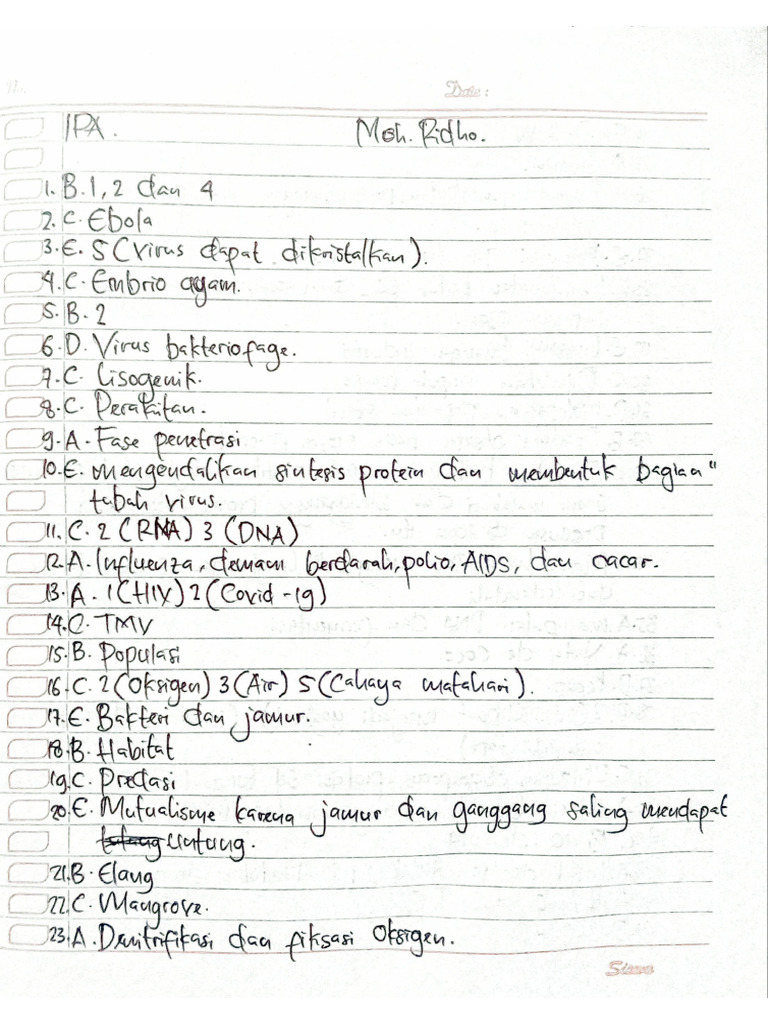 No.
Date:
IPA. Moh. Ridho.
1. B. 1, 2 dan 4
2. C. Ebola
3. E. 5 (Virus dapat dikristalkan).
4. C. Embrio ayam.
5. B. 2
6. D. Virus bakteriofage.
7. C. Lisogenik.
8. C. Perakitan.
9. A. Fase penetrasi
10. E. mengendalikan sintesis protein dan membentuk bagian"
tubah virus.
11. C. 2 (RNA) 3 (DNA)
12. A. Influenza, demam berdarah, polio, AIDS, dan cacar.
13. A. 1 (HIV) 2 (Covid-19)
14. C. TMV
15. B. Populasi
16. C. 2 (Oksigen) 3 (Air) 5 (Cahaya matahari).
17. E. Bakteri dan jamur.
18. B. Habitat
19. C. Predasi
20. E. Mutualisme karena jamur dan ganggang saling mendapat
untung.
21. B. Elang
22. C. Mangrove.
23. A. Denitrifikasi dan fiksasi Oksigen.